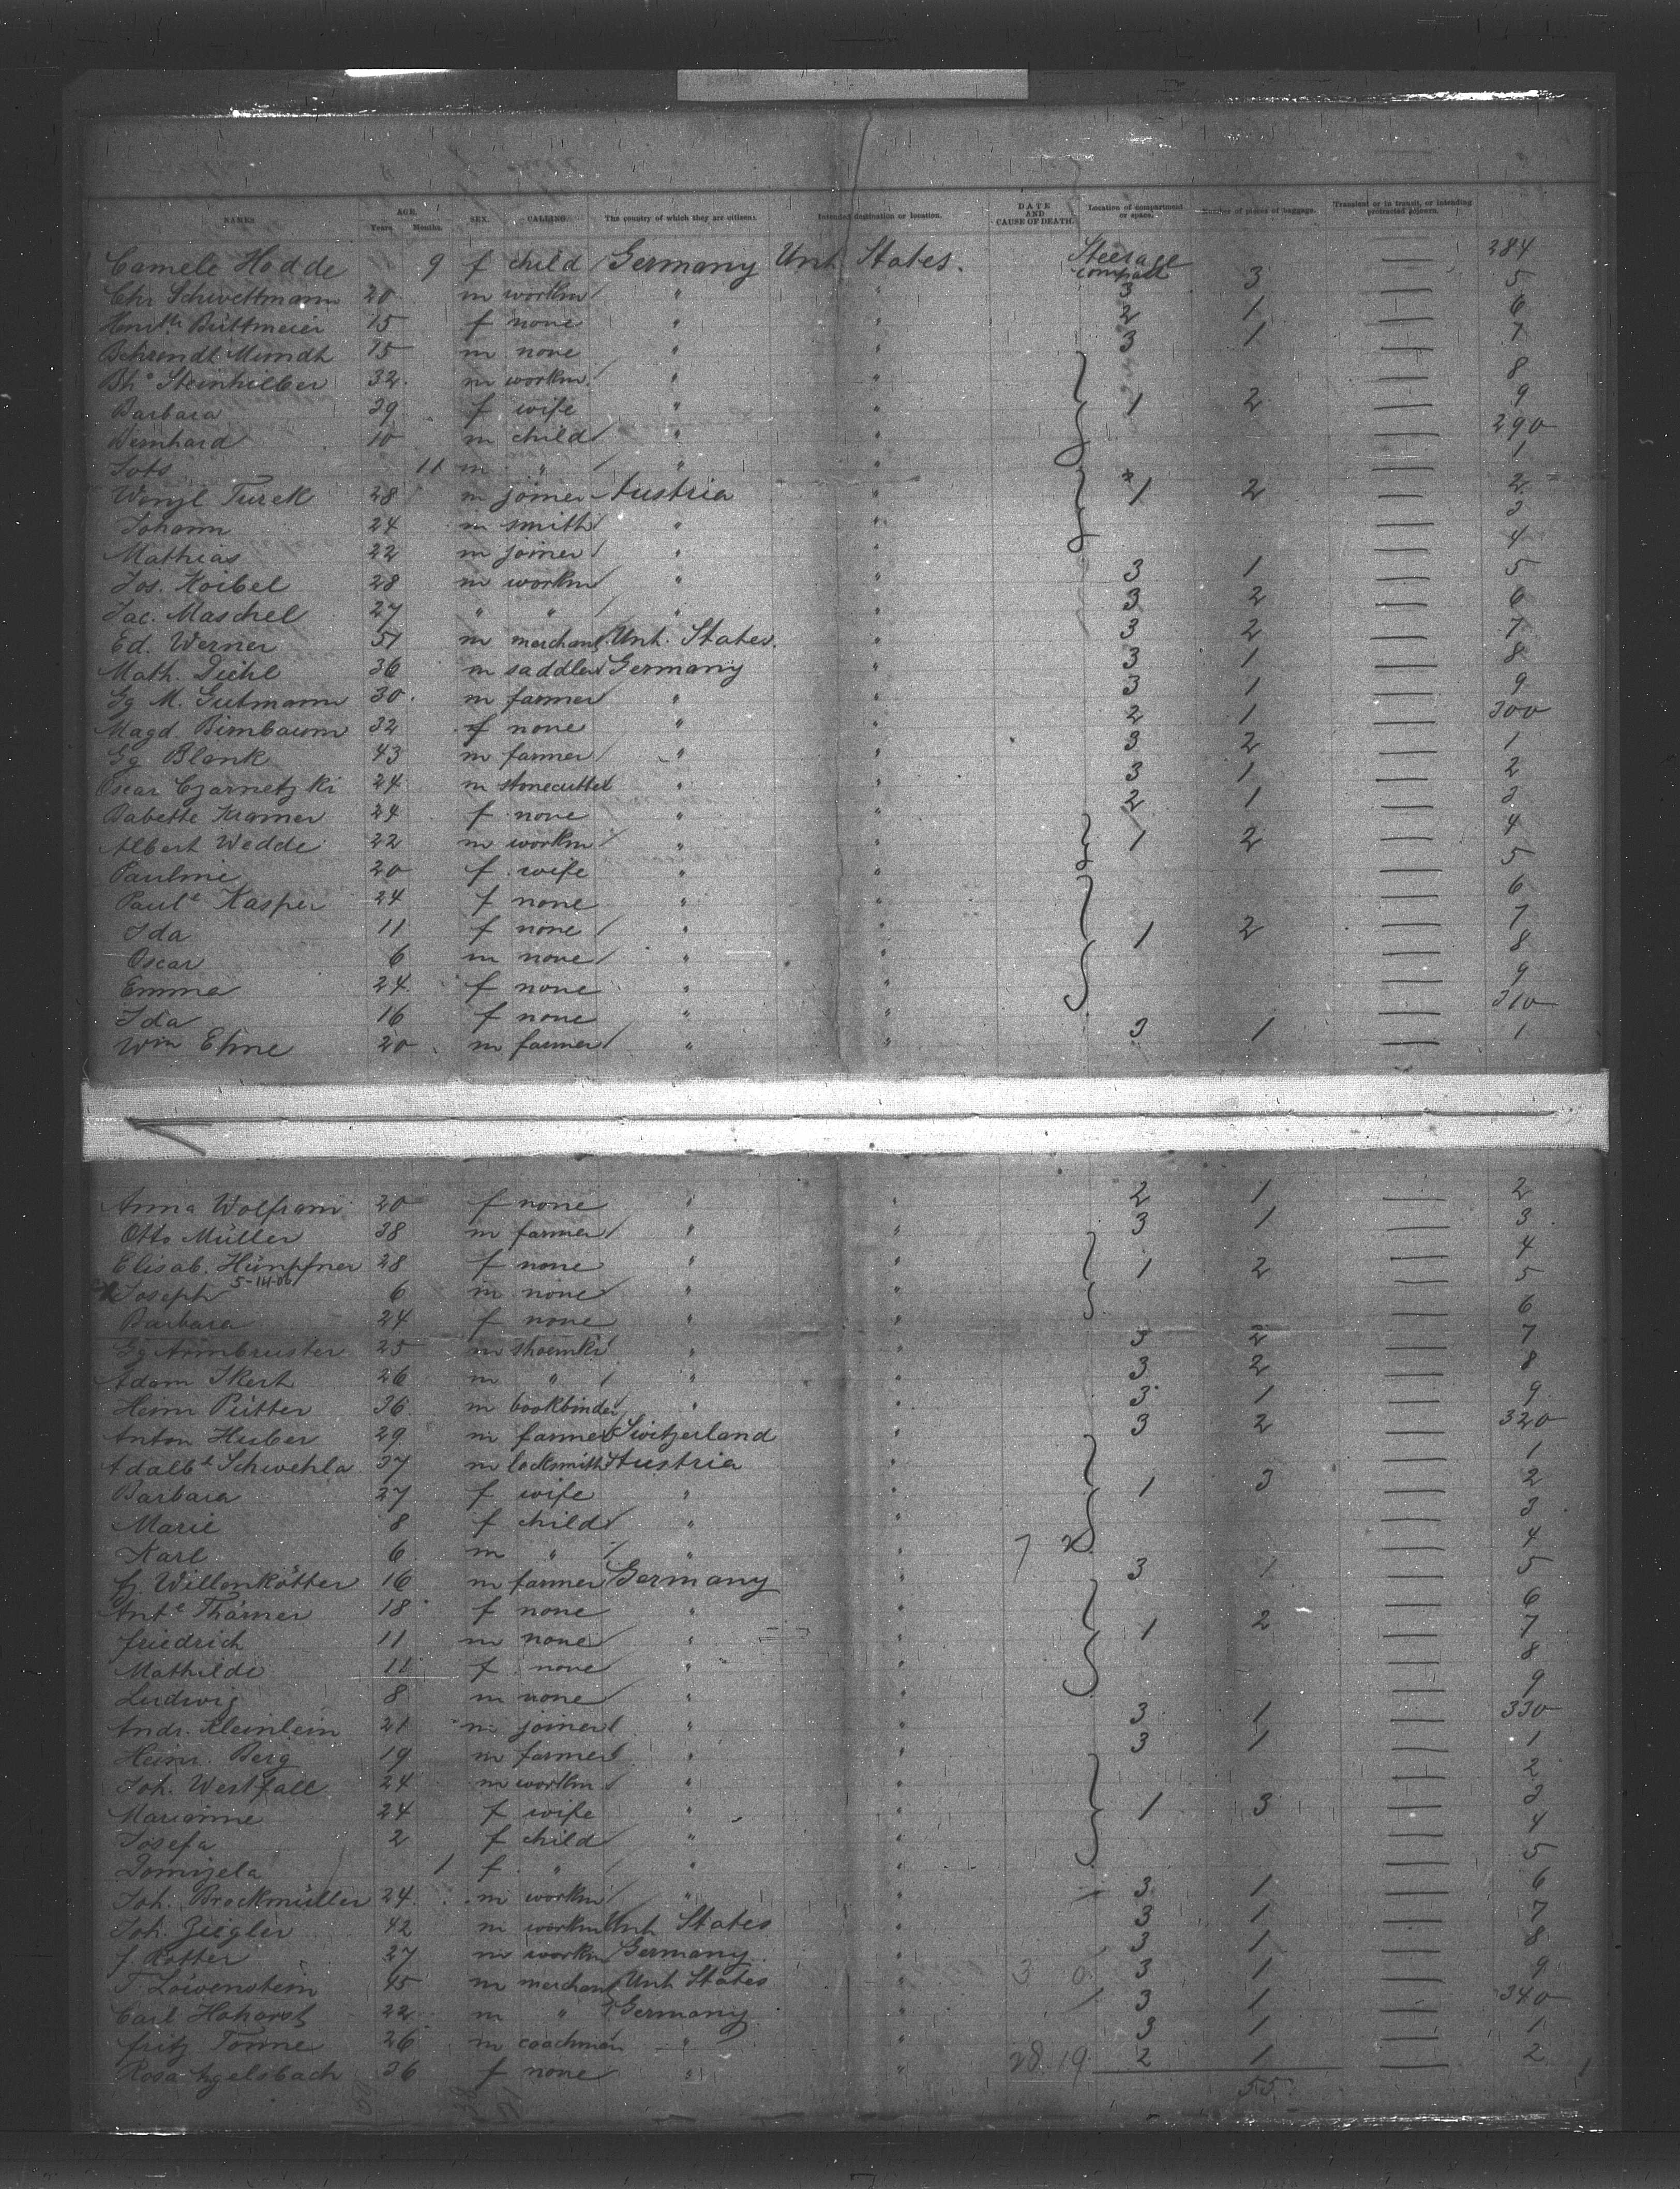 NAMES. AGE. Years. Months. SEX. CALLING. The country of which they are citizens. Intended destination or location. DATE AND CAUSE OF DEATH. Location of compartment or space. Number of pieces of baggage. Transient or in transit, or intending protracted sojourn.
Camele Hodde 9 f child Germany Unit. States. Steerage compart 3 — 284
Chr Schwettmann 20 m workm " " 3 1 — 5
Henrtte Büttmeier 15 f none " " 2 1 — 6
Behrendt Memdt 15 m none " " 3 1 — 7
Bho Steinhilber 32 m workm " " — 8
Barbara 39 f wife " " 1 2 — 9
Bernhard 10 m child " " — 290
Jobs 11 m " " " — 1
Wenzl Turek 28 m joiner Austria " 1 2 — 2
Johann 24 m smith " " — 3
Mathias 22 m joiner " " — 4
Jos. Koibel 28 m workm " " 3 1 — 5
Jac. Maschel 27 " " " " 3 2 — 6
Ed. Werner 51 m merchant Unit. States. " 3 2 — 7
Math. Diehl 36 m saddler Germany " 3 1 — 8
Gg M. Gutmann 30 m farmer " " 3 1 — 9
Magd. Birnbaum 32 f none " " 2 1 — 300
Gg Blank 43 m farmer " " 3 2 — 1
Oscar Czarnetzki 24 m stonecutter " " 3 1 — 2
Babette Kramer 24 f none " " 2 1 — 3
Albert Wedde 22 m workm " " 1 2 — 4
Pauline 20 f wife " " — 5
Paule Kasper 24 f none " " — 6
Ida 11 f none " " 1 2 — 7
Oscar 6 m none " " — 8
Emma 24 f none " " — 9
Ida 16 f none " " — 310
Wm Ehne 20 m farmer " " 3 1 — 1
Anna Wolfram 20 f none " " 2 1 — 2
Otto Müller 38 m farmer " " 3 1 — 3
Elisab. Hümpfner 28 f none " " 1 2 — 4
Joseph 5-14-06 6 m none " " — 5
Barbara 24 f none " " — 6
Gg Armbruster 25 m shoemkr " " 3 2 — 7
Adam Ikert 26 m " " " 3 2 — 8
Heinr Pütter 36 m bookbinder " " 3 1 — 9
Anton Huber 29 m farmer Switzerland " 3 2 — 320
Adalbt Schwehla 37 m locksmith Austria " — 1
Barbara 27 f wife " " 1 3 — 2
Marie 8 f child " " — 3
Karl 6 m " " " — 4
H. Willenkötter 16 m farmer Germany " 3 1 — 5
Ante Thörner 18 f none " " — 6
Friedrich 11 m none " " 1 2 — 7
Mathilde 11 f none " " — 8
Ludwig 8 m none " " — 9
Andr. Kleinlein 21 m joiner " " 3 1 — 330
Heinr. Berg 19 m farmer " " 3 1 — 1
Joh. Westfall 24 m workm " " — 2
Marianne 24 f wife " " 1 3 — 3
Josefa 2 f child " " — 4
Domizela 1 f " " " — 5
Joh. Brockmüller 24 m workm " " 3 1 — 6
Joh. Ziegler 42 m workm Unit States " 3 1 — 7
F. Rotter 27 m workm Germany " 3 1 — 8
T Löwenstein 45 m merchant Unit States " 3 0 3 1 — 9
Carl Hohorst 22 m " Germany " 3 1 — 340
Fritz Tönne 26 m coachman " " 3 1 — 1
Rosa Agelsbach 36 f none " " 28. 19 2 1 — 2
55